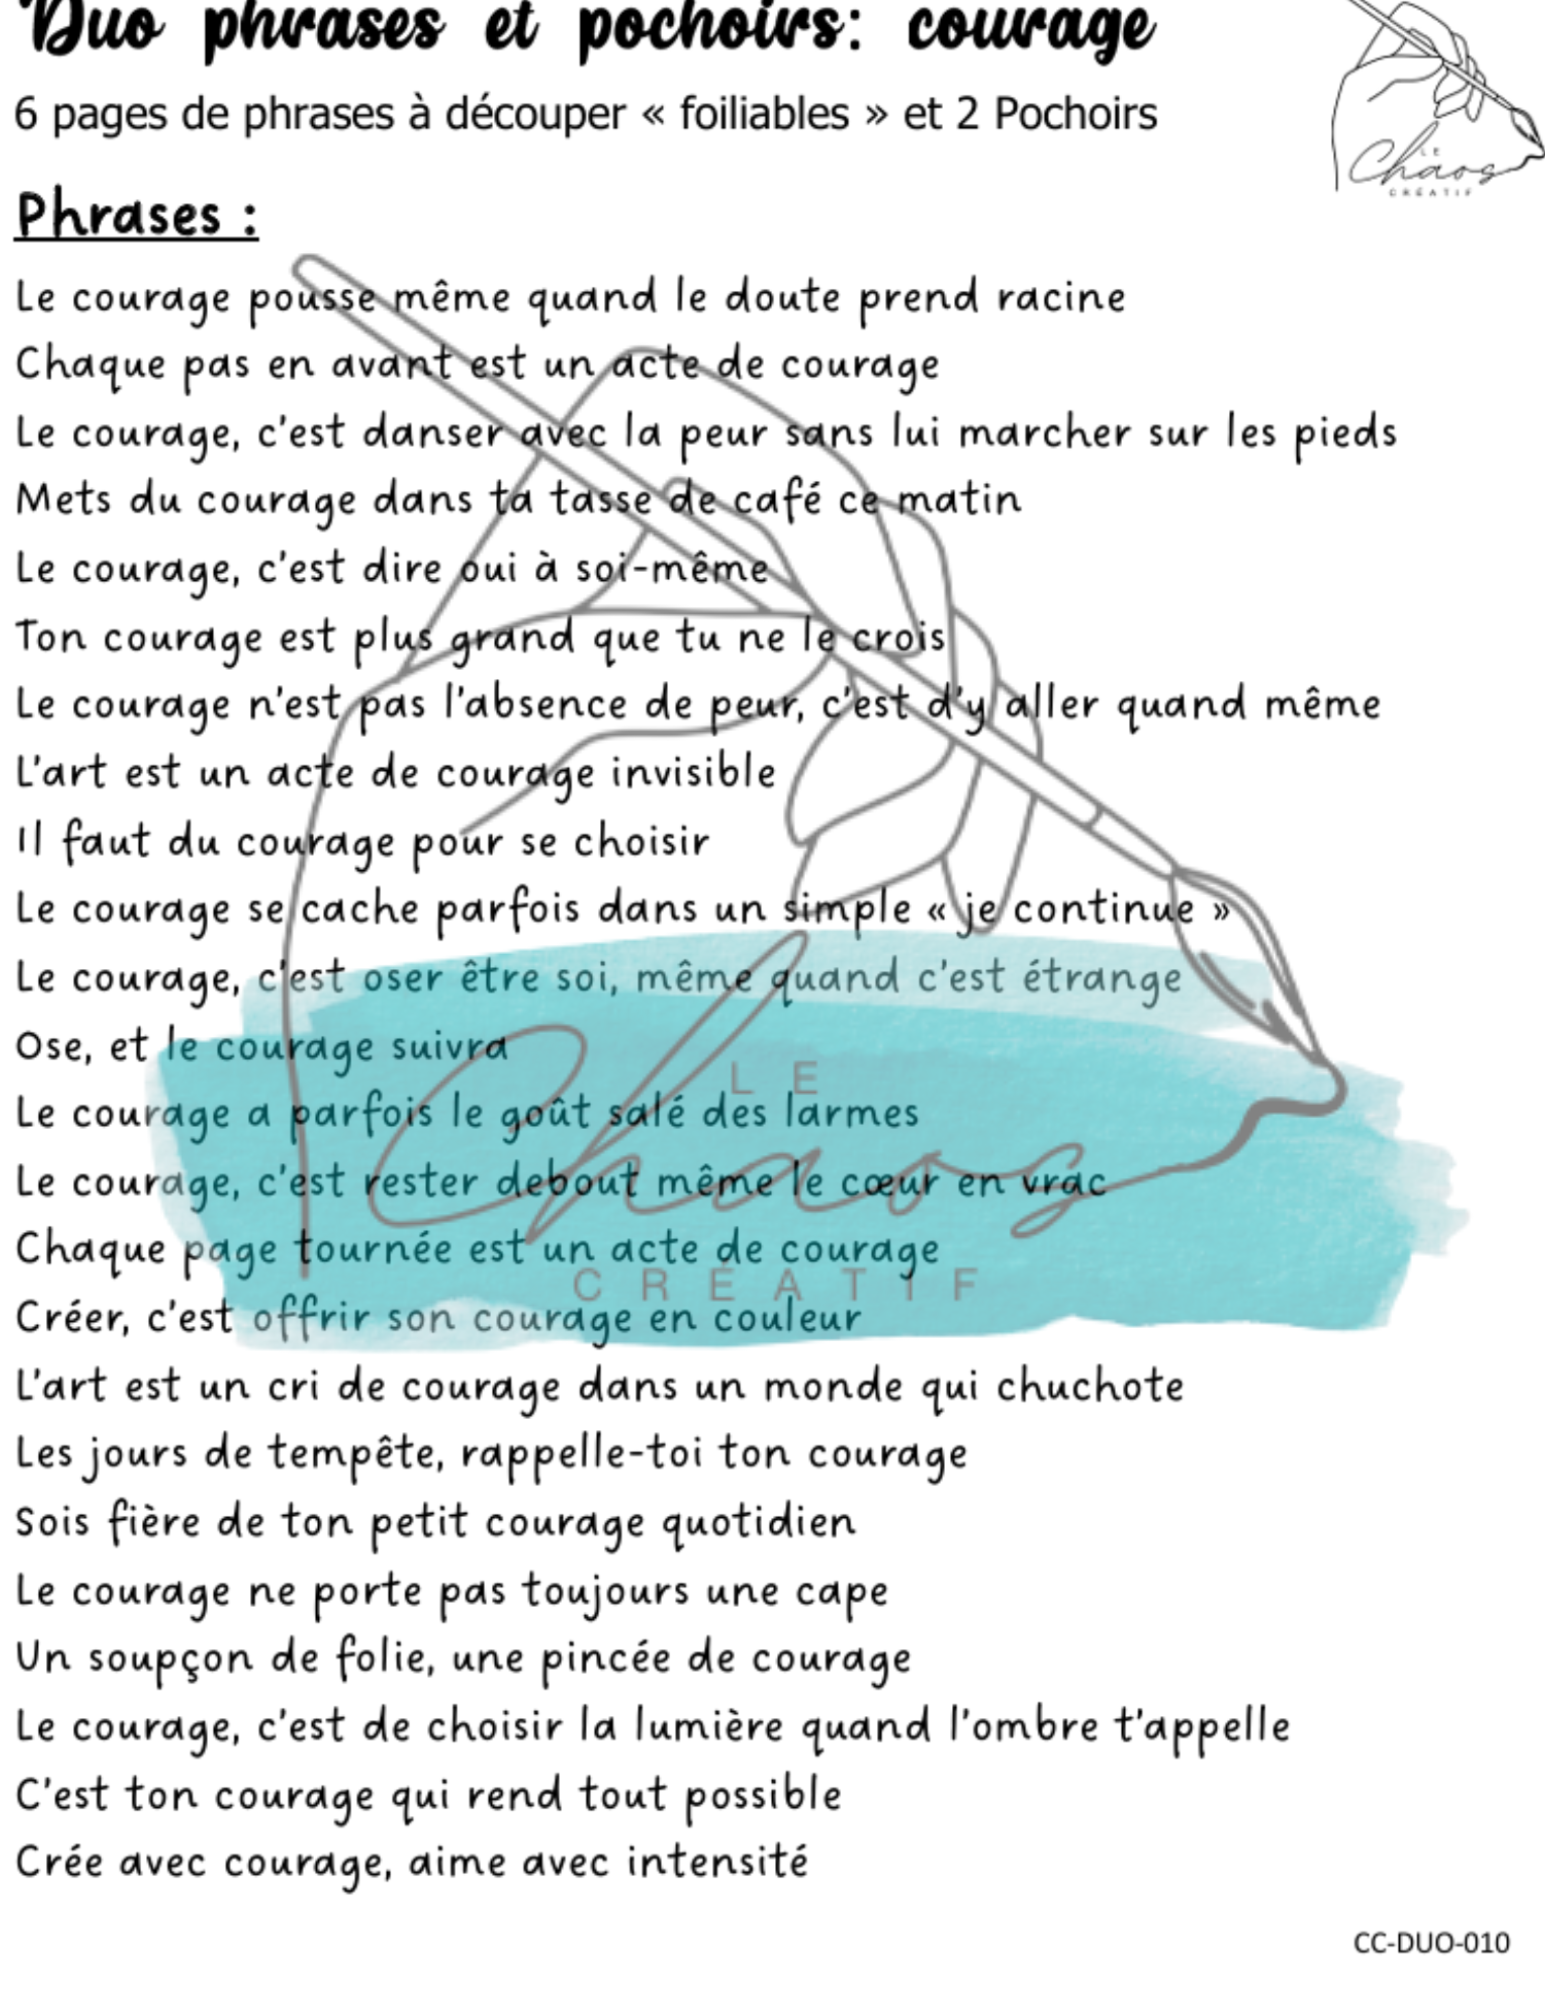 Duo phrases et pochoirs: courage
6 pages de phrases à découper « foiliables » et 2 Pochoirs
LE
Chaos
CRÉATIF
Phrases :
Le courage pousse même quand le doute prend racine
Chaque pas en avant est un acte de courage
Le courage, c'est danser avec la peur sans lui marcher sur les pieds
Mets du courage dans ta tasse de café ce matin
Le courage, c'est dire oui à soi-même
Ton courage est plus grand que tu ne le crois
Le courage n'est pas l'absence de peur, c'est d'y aller quand même
L'art est un acte de courage invisible
Il faut du courage pour se choisir
Le courage se cache parfois dans un simple « je continue »
Le courage, c'est oser être soi, même quand c'est étrange
Ose, et le courage suivra
LE
Le courage a parfois le goût salé des larmes
Chaos
Le courage, c'est rester debout même le cœur en vrac
Chaque page tournée est un acte de courage
CRÉATIF
Créer, c'est offrir son courage en couleur
L'art est un cri de courage dans un monde qui chuchote
Les jours de tempête, rappelle-toi ton courage
Sois fière de ton petit courage quotidien
Le courage ne porte pas toujours une cape
Un soupçon de folie, une pincée de courage
Le courage, c'est de choisir la lumière quand l'ombre t'appelle
C'est ton courage qui rend tout possible
Crée avec courage, aime avec intensité
CC-DUO-010